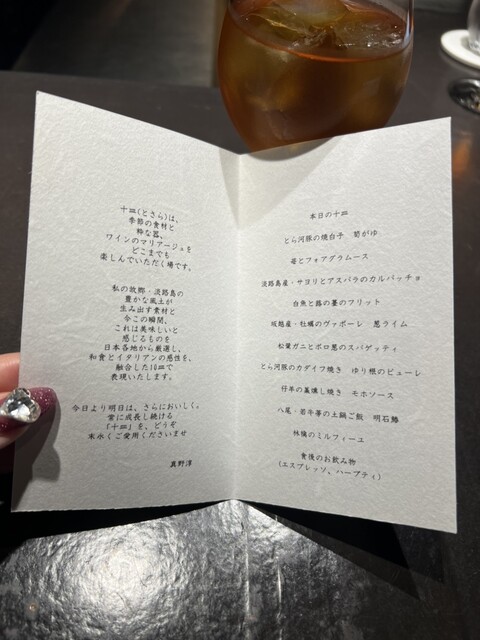 十皿(とさら)は、
季節の食材と
粋な器、
ワインのマリアージュを
どこまでも
楽しんでいただく場です。
私の故郷・淡路島の
豊かな風土が
生み出す素材と
今この瞬間、
これは美味しいと
感じるものを
日本各地から厳選し、
和食とイタリアンの感性を、
融合した10皿で
表現いたします。
今日より明日は、さらにおいしく。
常に成長し続ける
「十皿」を、どうぞ
末永くご愛用くださいませ
真野淳
本日の十皿
とら河豚の焼白子 筍がゆ
苺とフォアグラムース
淡路島産・サヨリとアスパラのカルパッチョ
白魚と蕗の薹のフリット
坂越産・牡蠣のヴァポーレ 葱ライム
松葉ガニとポロ葱のスパゲッティ
とら河豚のカダイフ焼き ゆり根のピューレ
仔羊の藁燻し焼き モホソース
八尾・若牛蒡の土鍋ご飯 明石鯵
林檎のミルフィーユ
食後のお飲み物
(エスプレッソ、ハーブティ)